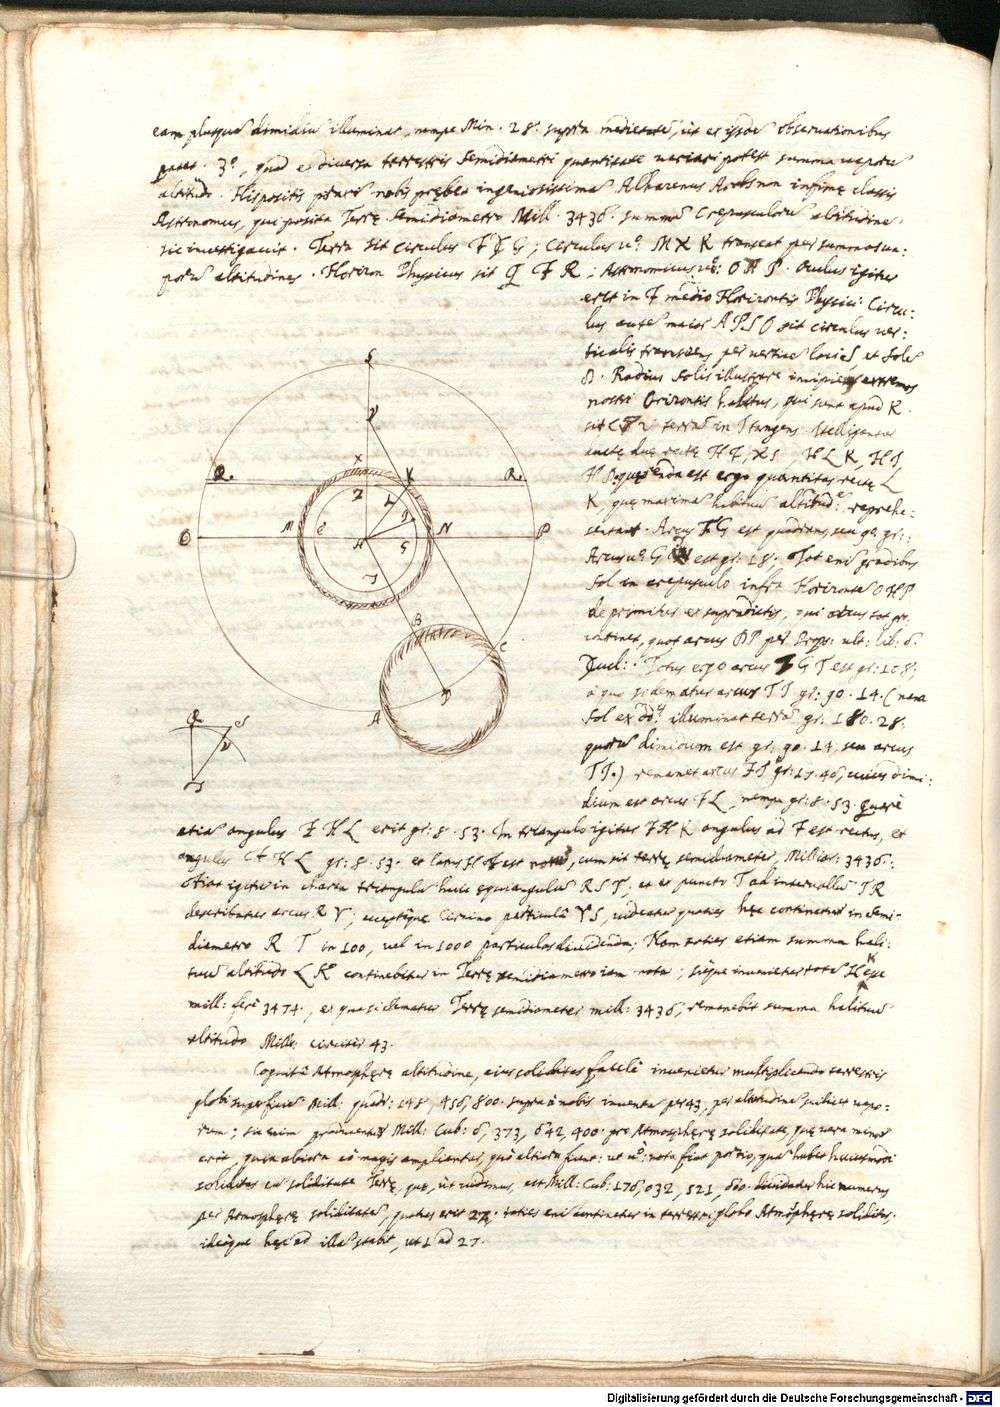 eam plusquã dimidiũ illuminat, nempe Min. 28. supra medietatẽ, ut ex ijsdẽ observationibus
patet. 3º, quod ex diversa terrestris semidiametri quantitate variari potest summa vaporũ
altitudo. Hispositis ptari nobis prębet ingeniosissimus Alhazenus Arabs non infimę classis
Astronomus, qui posita Terrę semidiametro Mill. 3436. summã Crepusculorũ altitudinẽ
sic investigavit. Terra sit circulus F I G; Circulus vº. M X K transeat per summas va-
porũ altitudines. Horizon Physicus sit Q F R; Astronomicus vº: O H P. Oculus igitur
erit in F medio Horizontis Physici: Circu-
lus autẽ maior A P S O sit circulus ver-
ticalis transiens per verticẽ loci S, et Solẽ
B. Radius Solis illustrare incipiens extremos
nostri Orizontis halitus, qui sunt apud K.
sit terrã in I tangens. Intelligantur
ductę duę rectę H F, X S, H L K, H I,
est ergo quantitas rectę L
K, quę maximã halituũ altitudinẽ repręse-
sentat. Arcus F G est quadrans, seu 90. gr:
Arcus vº. G est gr: 18, Tot enĩ gradibus
Sol in crepusculo infra Horizontẽ O H P
deprimitur ex supradictis, qui arcus tot gr.
continet, quot arcus B P per Prop: ult: lib: 6.
Eucl: Totus ergo arcus F G T est gr: 108;
a quo si dematur arcus T I gr: 90. 14. (nam
Sol ex illuminat terrã gr. 180. 28.
quorũ dimidium est gr. 90. 14, seu arcus
T I.) remanet arcus F I gr: 17. 46, cuius dimi-
dium est arcus F L, nempe gr: 8. 53. Quarẽ
etiã angulus F H L erit gr: 8. 53. In triangulo igitur F H K angulus ad F est rectus, et
angulus F H L gr: 8. 53. et latus H F est notũ, cum sit terrę semidiameter, Milliar: 3436.
Fiat igitur in charta triangulũ huic ęquiangulũ R S T, et ex puncto T ad intervallũ T R
describatur arcus R V; acceptâque Circino particulâ V S, videatur quoties hęc contineatur in semi-
diametro R T in 100, vel in 1000 particulas dividenda; Nam toties etiam summa hali-
tuũ altitudo L K continebitur in Terrę semidiametro iam nota; sicque invenietur tota H K esse
mill: ferè 3474., ex qua si dematur Terrę semidiameter mill: 3436, remanebit summa halituũ
altitudo Mill: circiter 43.
Cognitâ Atmosphęrę altitudine, eius soliditas facilè invenietur multiplicando terrestris
globi superficiẽ Mill: quadr: 148, 456, 800. supra à nobis inventã per 43, per altitudinẽ scilicet vapo-
rum; sic enim producentur Mill: Cub: 6, 373, 642, 400. pro Atmosphęrę soliditate, quę vera minor
erit, quia aliora eò magis ampliantur, quò altiora fiunt: ut vº: nota fiat portio, quã habet huiusmodi
soliditas cũ soliditate Terrę, quę, ut vidimus, est Mill: Cub: 176, 032, 521, 600. dividatur hic numerus
per Atmosphęrę soliditatẽ, quoties erit 27. toties enĩ continetur in terrestri globo Atmosphęrę soliditas.
ideòque hęc ad illã stabit, ut 1 ad 27.
S
V
X
Q.
K
R.
Z
L
I
M
E
H
G
N
O
P
T
B
C
A
D
R
S
V
T
Digitalisierung gefördert durch die Deutsche Forschungsgemeinschaft - DFG